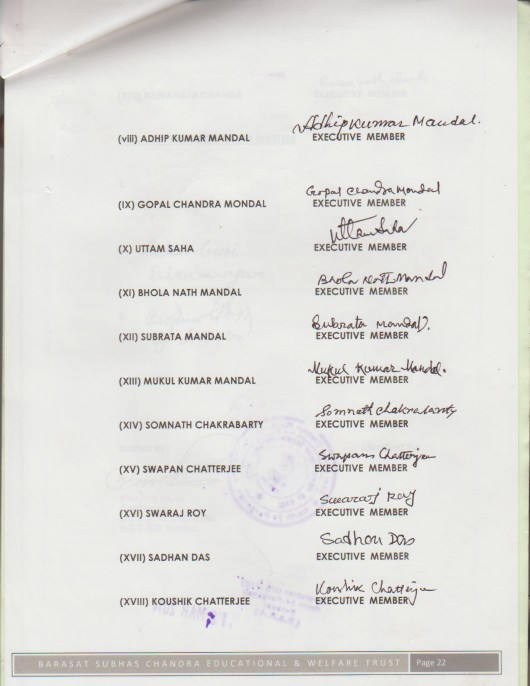 Adhip Kumar Mandal.
(viii) ADHIP KUMAR MANDAL EXECUTIVE MEMBER
Gopal Chandra Mondal
(IX) GOPAL CHANDRA MONDAL EXECUTIVE MEMBER
Uttam Saha
(X) UTTAM SAHA EXECUTIVE MEMBER
Bhola Nath Mandal
(XI) BHOLA NATH MANDAL EXECUTIVE MEMBER
Subrata Mandal.
(XII) SUBRATA MANDAL EXECUTIVE MEMBER
Mukul Kumar Mandal.
(XIII) MUKUL KUMAR MANDAL EXECUTIVE MEMBER
Somnath Chakrabarty
(XIV) SOMNATH CHAKRABARTY EXECUTIVE MEMBER
Swapan Chatterjee
(XV) SWAPAN CHATTERJEE EXECUTIVE MEMBER
Swaraj Roy
(XVI) SWARAJ ROY EXECUTIVE MEMBER
Sadhan Das
(XVII) SADHAN DAS EXECUTIVE MEMBER
Koushik Chatterjee
(XVIII) KOUSHIK CHATTERJEE EXECUTIVE MEMBER
BARASAT SUBHAS CHANDRA EDUCATIONAL & WELFARE TRUST Page 22